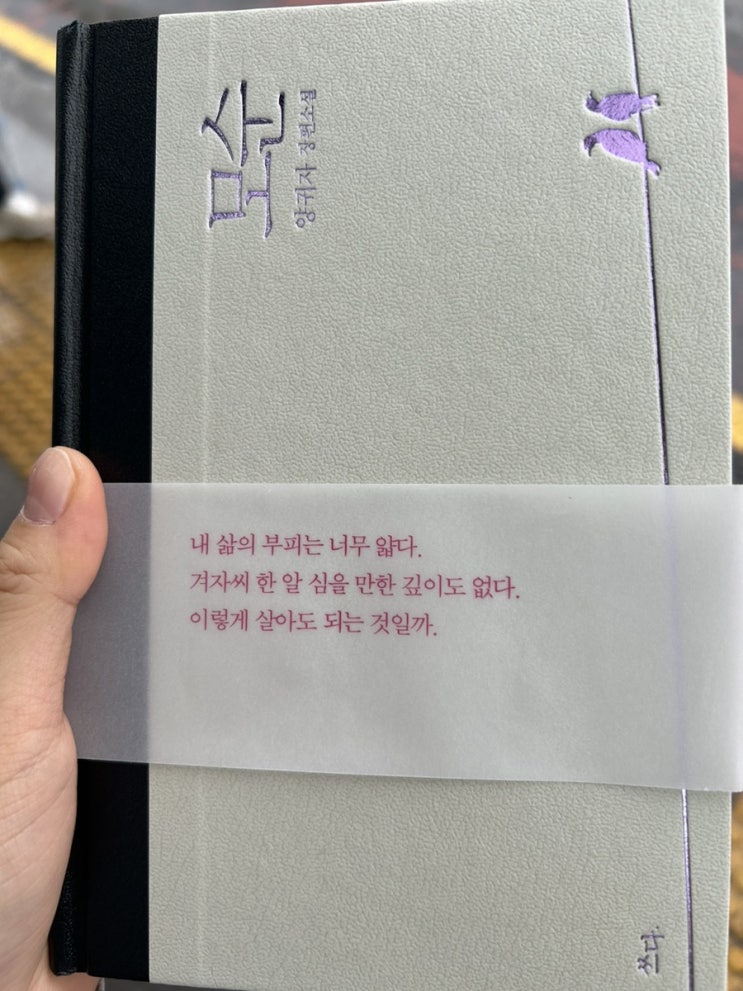 모순
양귀자 장편소설
내 삶의 부피는 너무 얇다.
겨자씨 한 알 심을 만한 깊이도 없다.
이렇게 살아도 되는 것일까.
쓰다.